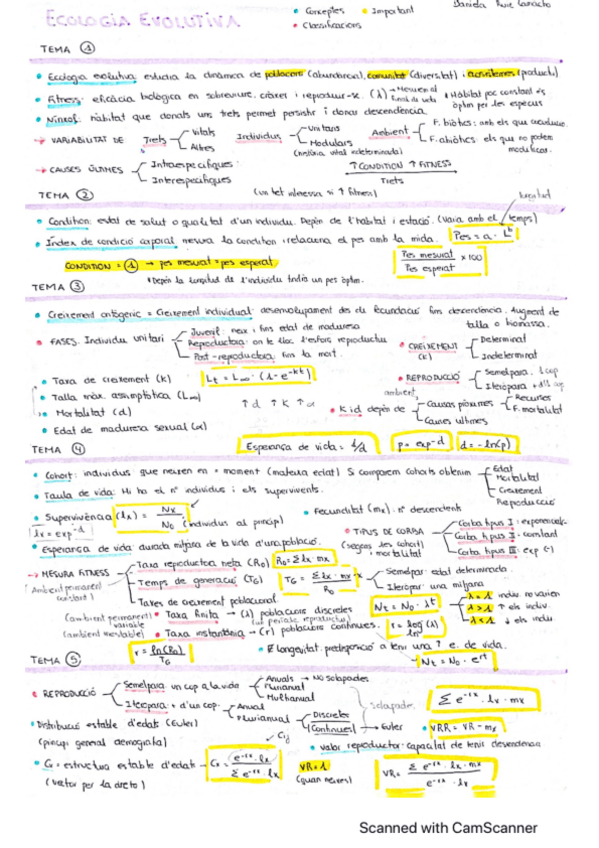 ECOLOGIA EVOLUTIVA
• Conceptes • Important
• Classificacions
Daniela Ruiz
TEMA 1
• Ecologia evolutiva: estudia la dinàmica de poblacions (abundància), comunitat (diversitat) i ecosistemes (producti)
• Fitness: eficàcia biològica en sobreviure, créixer i reproduir-se. (λ) → Mesura al final de vida
• Hàbitat poc constant és òptim per les espècies
• Nínxol: hàbitat que donats uns trets permet persistir i donar descendència.
→ VARIABILITAT DE Trets Vitals Altres
Individus Unitaris Modulars
(història vital indeterminada)
Ambient F. biòtics: amb els que
F. abiòtics els que no poden modificar.
→ CAUSES ÚLTIMES Intraespecífiques Interespecífiques
↑ CONDITION ↑ FITNESS
Trets
(un tret interessa si ↑ fitness)
TEMA 2
• Condition: estat de salut o qualitat d'un individu. Depèn de l'hàbitat i estació. (Varia amb el temps)
longitud
• Índex de condició corporal: mesura la condition i relaciona el pes amb la mida.
Pes = a · L^b
CONDITION = 1 → pes mesurat = pes esperat
Pes mesurat / Pes esperat x 100
*Depèn la longitud de l'individu tindrà un pes òptim.
TEMA 3
• Creixement ontogènic = Creixement individual: desenvolupament des de fecundació fins descendència. Augment de talla o biomassa.
• FASES. Individu unitari
Juvenil: neix i fins edat de maduresa
Reproductora: on té lloc l'esforç reproductiu
Post-reproductora: fins la mort.
• CREIXEMENT (k) Determinat Indeterminat
• REPRODUCCIÓ Semelpara: 1 cop Iteròpara +d'1 cop
• Taxa de creixement (k)
Lt = L∞ · (1 - e^-kt)
• Talla màx. asimptòtica (L∞)
• Mortalitat (d)
↑d ↑K ↑α
• Edat de maduresa sexual (α)
ambient
• K i d depèn de Causes pròximes Recursos F. mortalitat
Causes últimes
TEMA 4
Esperança de vida = 1/d
p = exp^-d
d = -ln(p)
• Cohort: individus que neixen en = moment (mateixa edat) Si comparem cohorts obtenim Edat Mortalitat Creixement Reproducció
• Taula de vida: Hi ha el nº individus i els supervivents.
• Supervivència (lx) = Nx / N0 (individus al principi)
lx = exp^-d
• Fecunditat (mx): nº descendents
• TIPUS DE CORBA (segons des cohort) ↓ mortalitat
Corba tipus I: exponencial
Corba tipus II: constant
Corba tipus III: exp (-)
• Esperança de vida: durada mitjana de la vida d'una població.
→ MESURA FITNESS
(Ambient permanent constant)
Taxa reproductora neta (R0) R0 = Σ lx · mx
Temps de generació (TG) TG = Σ lx · mx · x / R0
Semelpar: edat determinada.
Iteròpar: una mitjana
Taxes de creixement poblacional.
(ambient permanent) variable • Taxa finita → (λ) poblacions discretes
Nt = N0 · λt
λ = 1 indiv. no varien
λ > 1 ↑ els indiv.
λ < 1 ↓ els indiv
(ambient inestable) • Taxa instantània → (r) poblacions contínues.
r = log (λ)
r = ln(R0) / TG
• ≠ longevitat: predisposició a tenir una ? e. de vida.
Nt = N0 · e^rt
TEMA 5
• REPRODUCCIÓ
Semelpara un cop a la vida Anuals → No solapades Plurianual Multianual
Iteròpara + d'un cop Anual Plurianual Discretes Contínues → Euler
solapades
Σ e^-rx · lx · mx
• Distribució estable d'edat (Euler)
(principi general demografia)
• VRR = VR - mx
• Valor reproductor: capacitat de tenir descendència
• Cx = estructura estable d'edat → Cx = e^-rx · lx / Σ e^-rx · lx
(vector per la dreta)
VR = 1
(quan neixes)
VRx = Σ e^-rx · lx · mx / e^-rx · lx
Scanned with CamScanner